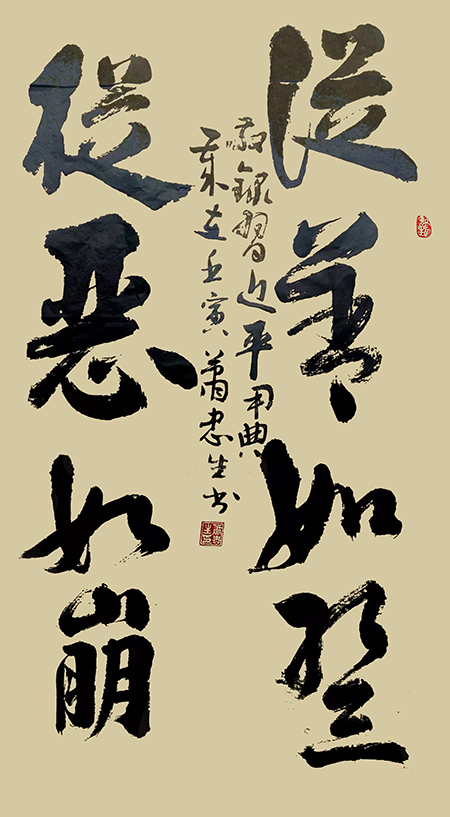 從善如登
敬錄習近平用典
歲在壬寅蕭忠生书
從惡如崩